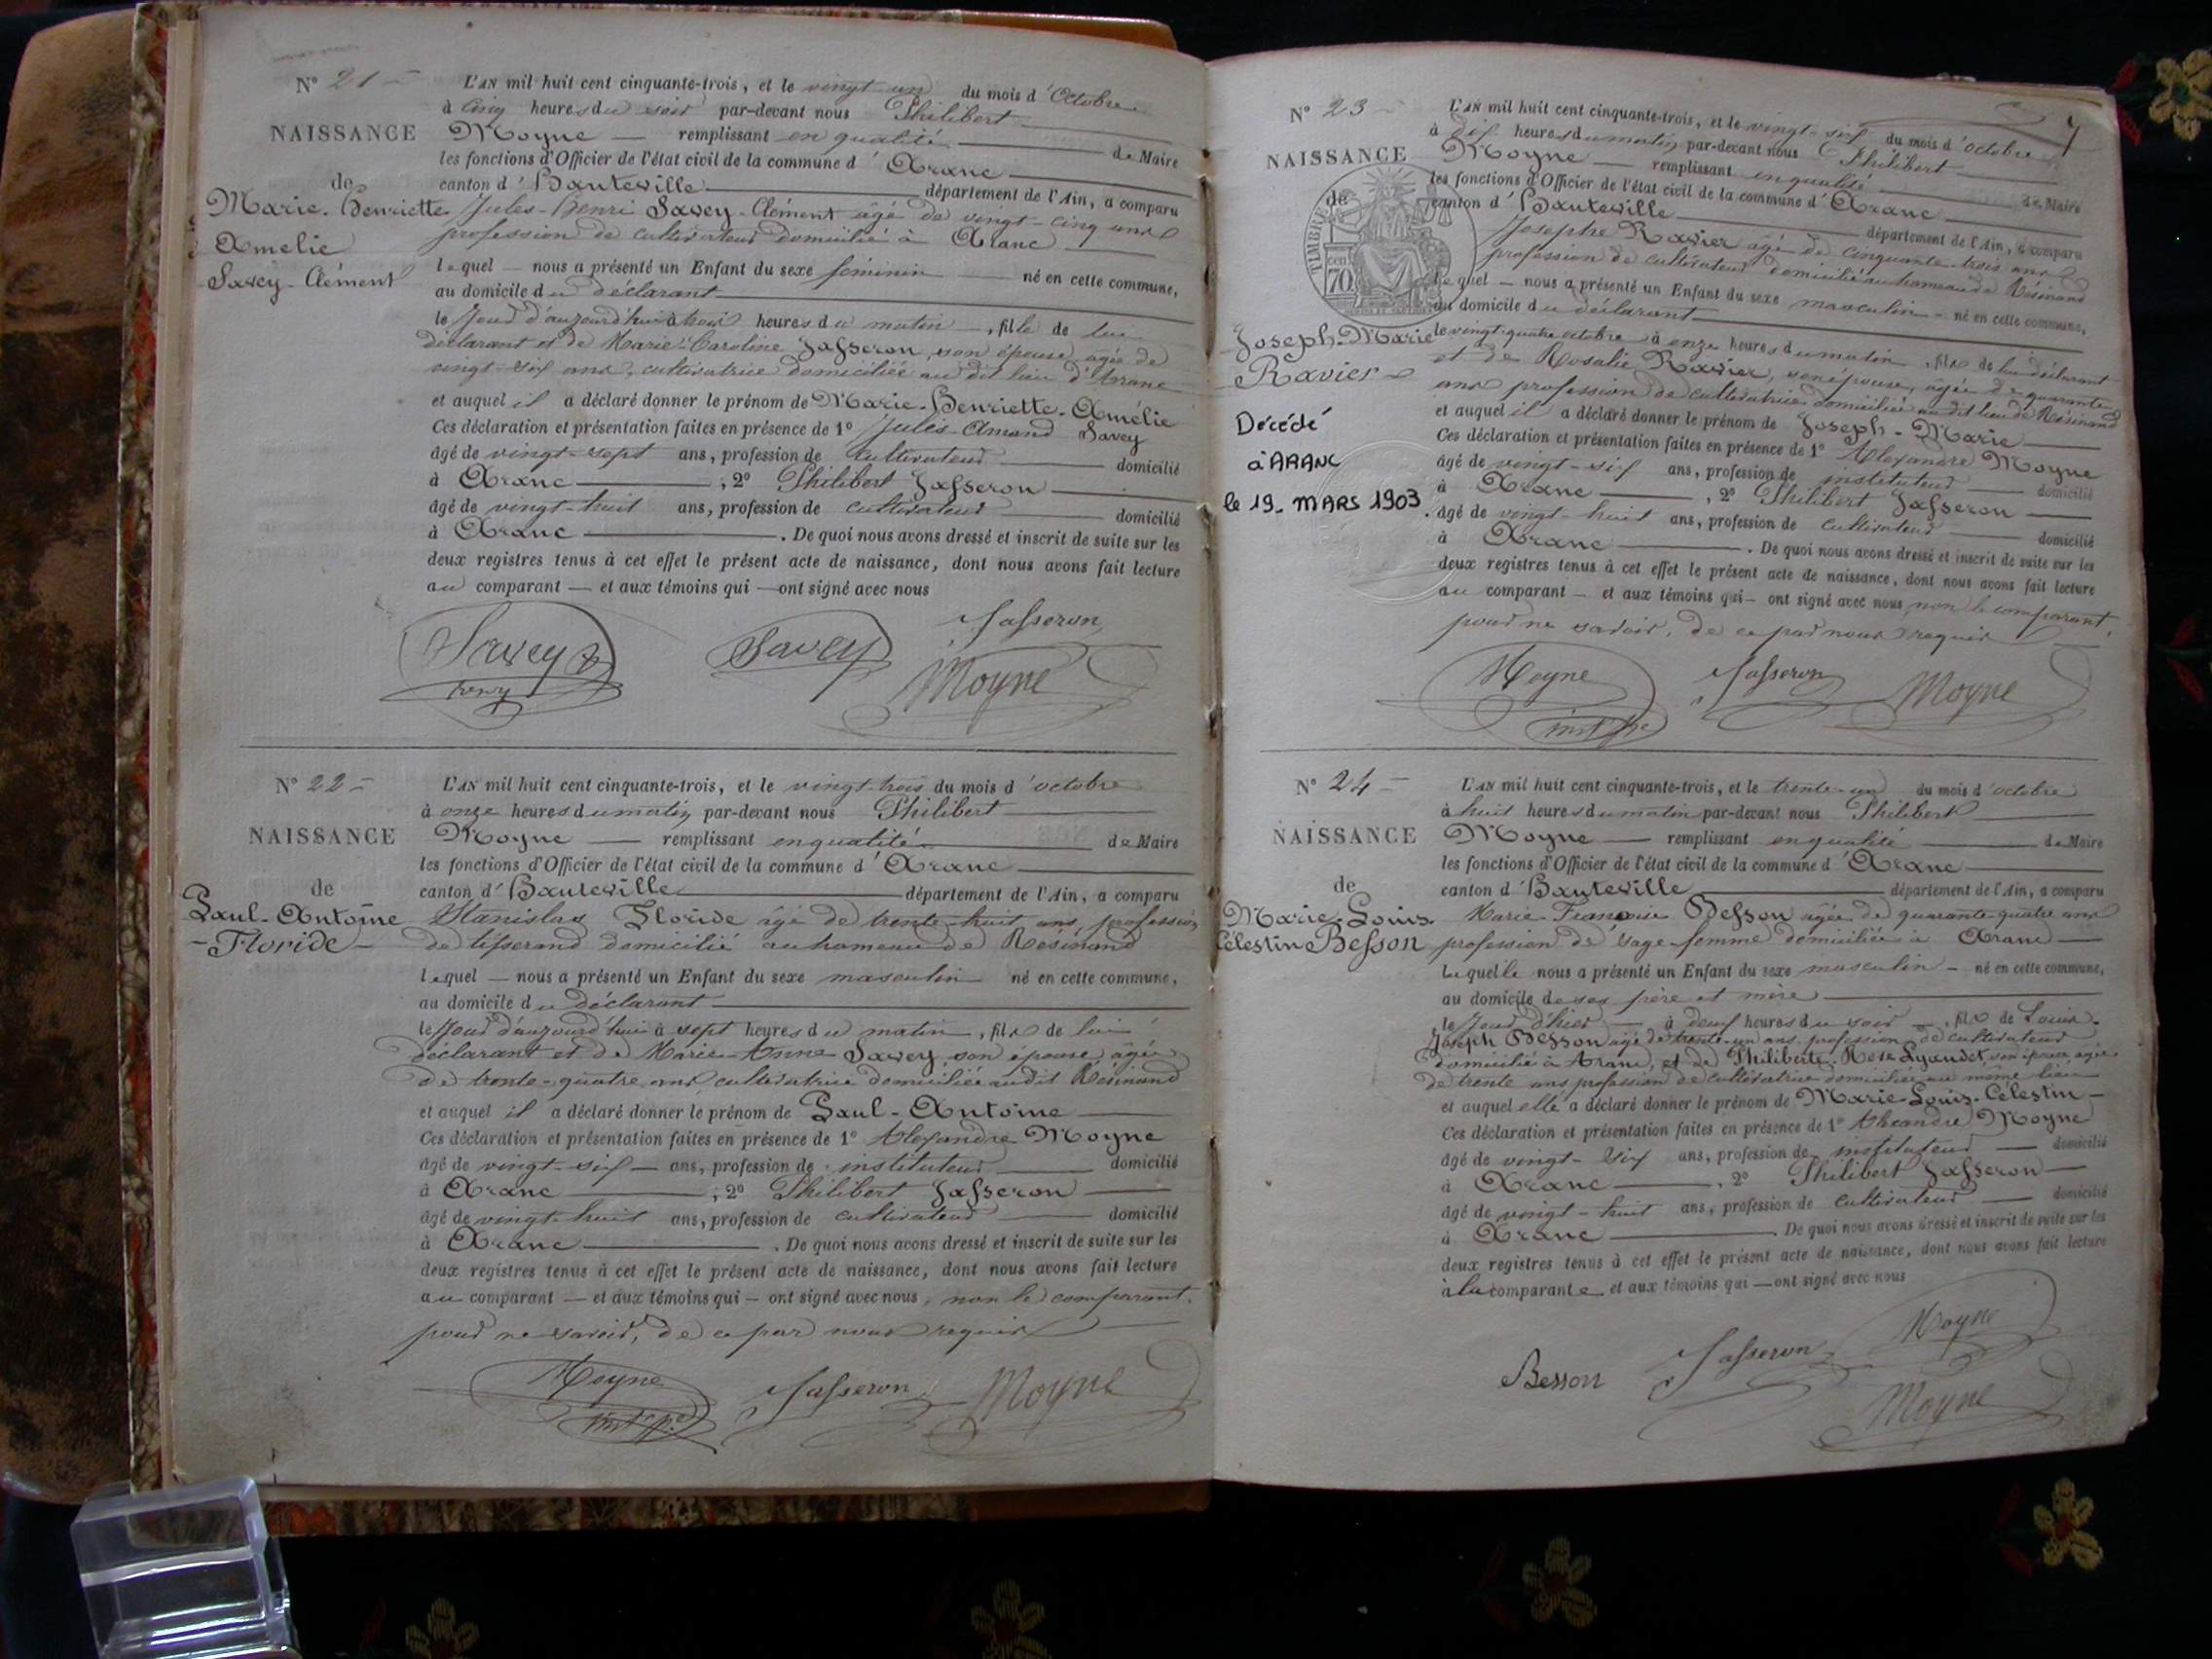 N° 21
NAISSANCE
de
Marie-Henriette
Amelie
Savey-Clément
L'AN mil huit cent cinquante-trois, et le vingt-un du mois d'Octobre
à cinq heures du soir par-devant nous Philibert
Moyne remplissant en qualité de Maire
les fonctions d'Officier de l'état civil de la commune d'Aranc
canton d'Hauteville département de l'Ain, a comparu
Jules-Henri Savey-Clément âgé de vingt-cinq ans
profession de cultivateur domicilié à Aranc
lequel nous a présenté un Enfant du sexe féminin né en cette commune,
au domicile du déclarant
le jour d'aujourd'hui à trois heures du matin, fille de lui
déclarant et de Marie-Caroline Jasseron, son épouse, agée de
vingt-six ans, cultivatrice domiciliée au dit lieu d'Arranc
et auquel il a déclaré donner le prénom de Marie-Henriette-Amélie
Ces déclaration et présentation faites en présence de 1° Jules-Amand Savey
âgé de vingt-sept ans, profession de cultivateur domicilié
à Aranc, 2° Philibert Jasseron
âgé de vingt-huit ans, profession de cultivateur domicilié
à Aranc. De quoi nous avons dressé et inscrit de suite sur les
deux registres tenus à cet effet le présent acte de naissance, dont nous avons fait lecture
au comparant et aux témoins qui ont signé avec nous
Jasseron
Savey Savey Moyne
N° 22
NAISSANCE
de
Paul-Antoine
Floride
L'AN mil huit cent cinquante-trois, et le vingt-trois du mois d'octobre
à onze heures du matin par-devant nous Philibert
Moyne remplissant en qualité de Maire
les fonctions d'Officier de l'état civil de la commune d'Aranc
canton d'Hauteville département de l'Ain, a comparu
Stanislas Floride âgé de trente-huit ans, profession
de tisserand domicilié au hameau de Résinand
lequel nous a présenté un Enfant du sexe masculin né en cette commune,
au domicile du déclarant
le jour d'aujourd'hui à sept heures du matin, fils de lui
déclarant et de Marie-Anne Savey son épouse, âgée
de trente-quatre ans cultivatrice domiciliée audit Résinand
et auquel il a déclaré donner le prénom de Paul-Antoine
Ces déclaration et présentation faites en présence de 1° Alexandre Moyne
âgé de vingt-six ans, profession de instituteur domicilié
à Aranc, 2° Philibert Jasseron
âgé de vingt-huit ans, profession de cultivateur domicilié
à Aranc. De quoi nous avons dressé et inscrit de suite sur les
deux registres tenus à cet effet le présent acte de naissance, dont nous avons fait lecture
au comparant et aux témoins qui ont signé avec nous, non le comparant
pour ne savoir, de ce par nous requis
Moyne Jasseron Moyne
N° 23
NAISSANCE
de
TIMBRE
70
Joseph-Marie
Ravier
Décédé
à ARANC
le 19. MARS 1903.
L'AN mil huit cent cinquante-trois, et le vingt-six du mois d'octobre
à dix heures du matin par-devant nous Philibert
Moyne remplissant en qualité de Maire
les fonctions d'Officier de l'état civil de la commune d'Aranc
canton d'Hauteville département de l'Ain, a comparu
Josephe Ravier âgé de cinquante-trois ans
profession de cultivateur domicilié au hameau de Résinand
lequel nous a présenté un Enfant du sexe masculin né en cette commune,
au domicile du déclarant
le vingt-quatre octobre à onze heures du matin, fils de lui déclarant
et de Rosalie Ravier, son épouse, âgée de quarante
ans profession de cultivatrice domiciliée au dit lieu de Résinand
et auquel il a déclaré donner le prénom de Joseph-Marie
Ces déclaration et présentation faites en présence de 1° Alexandre Moyne
âgé de vingt-six ans, profession de instituteur domicilié
à Aranc, 2° Philibert Jasseron
âgé de vingt-huit ans, profession de cultivateur domicilié
à Aranc. De quoi nous avons dressé et inscrit de suite sur les
deux registres tenus à cet effet le présent acte de naissance, dont nous avons fait lecture
au comparant et aux témoins qui ont signé avec nous non le comparant,
pour ne savoir, de ce par nous requis
Moyne Jasseron Moyne
N° 24
NAISSANCE
de
Marie-Louis-
Célestin Besson
L'AN mil huit cent cinquante-trois, et le trente-un du mois d'octobre
à huit heures du matin par-devant nous Philibert
Moyne remplissant en qualité de Maire
les fonctions d'Officier de l'état civil de la commune d'Aranc
canton d'Hauteville département de l'Ain, a comparu
Marie-Françoise Besson âgée de quarante-quatre ans
profession de sage-femme domiciliée à Aranc
laquelle nous a présenté un Enfant du sexe masculin né en cette commune,
au domicile de ses père et mère
le jour d'hier à neuf heures du soir, fils de Louis-
Joseph Besson agé de trente-un ans, profession de cultivateur
domicilié à Aranc, et de Philiberte-Rose Lyaudet, son épouse, agée
de trente ans profession de cultivatrice domiciliée au même lieu
et auquel elle a déclaré donner le prénom de Marie-Louis-Célestin
Ces déclaration et présentation faites en présence de 1° Alexandre Moyne
âgé de vingt-six ans, profession de instituteur domicilié
à Aranc, 2° Philibert Jasseron
âgé de vingt-huit ans, profession de cultivateur domicilié
à Aranc. De quoi nous avons dressé et inscrit de suite sur les
deux registres tenus à cet effet le présent acte de naissance, dont nous avons fait lecture
à la comparante et aux témoins qui ont signé avec nous
Moyne
Besson Jasseron
Moyne